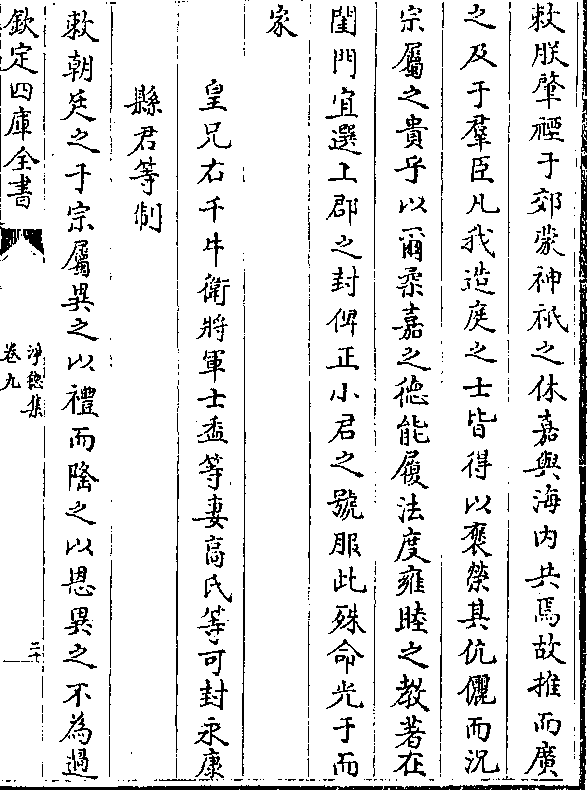 敕朕肇禋于郊蒙神祇之休嘉與海内共焉故推而廣
之及于羣臣凡我造庭之士皆得以褒榮其伉儷而況
宗屬之貴乎以爾柔嘉之徳能履法度雍睦之教著在
閨門宜選上郡之封俾正小君之號服此殊命光于而
家
皇兄右千牛衛將軍士盉等妻髙氏等可封永康
縣君等制
敕朝廷之于宗屬異之以禮而隆之以恩異之不為過
欽定四庫全書
淨德集
卷九
三十